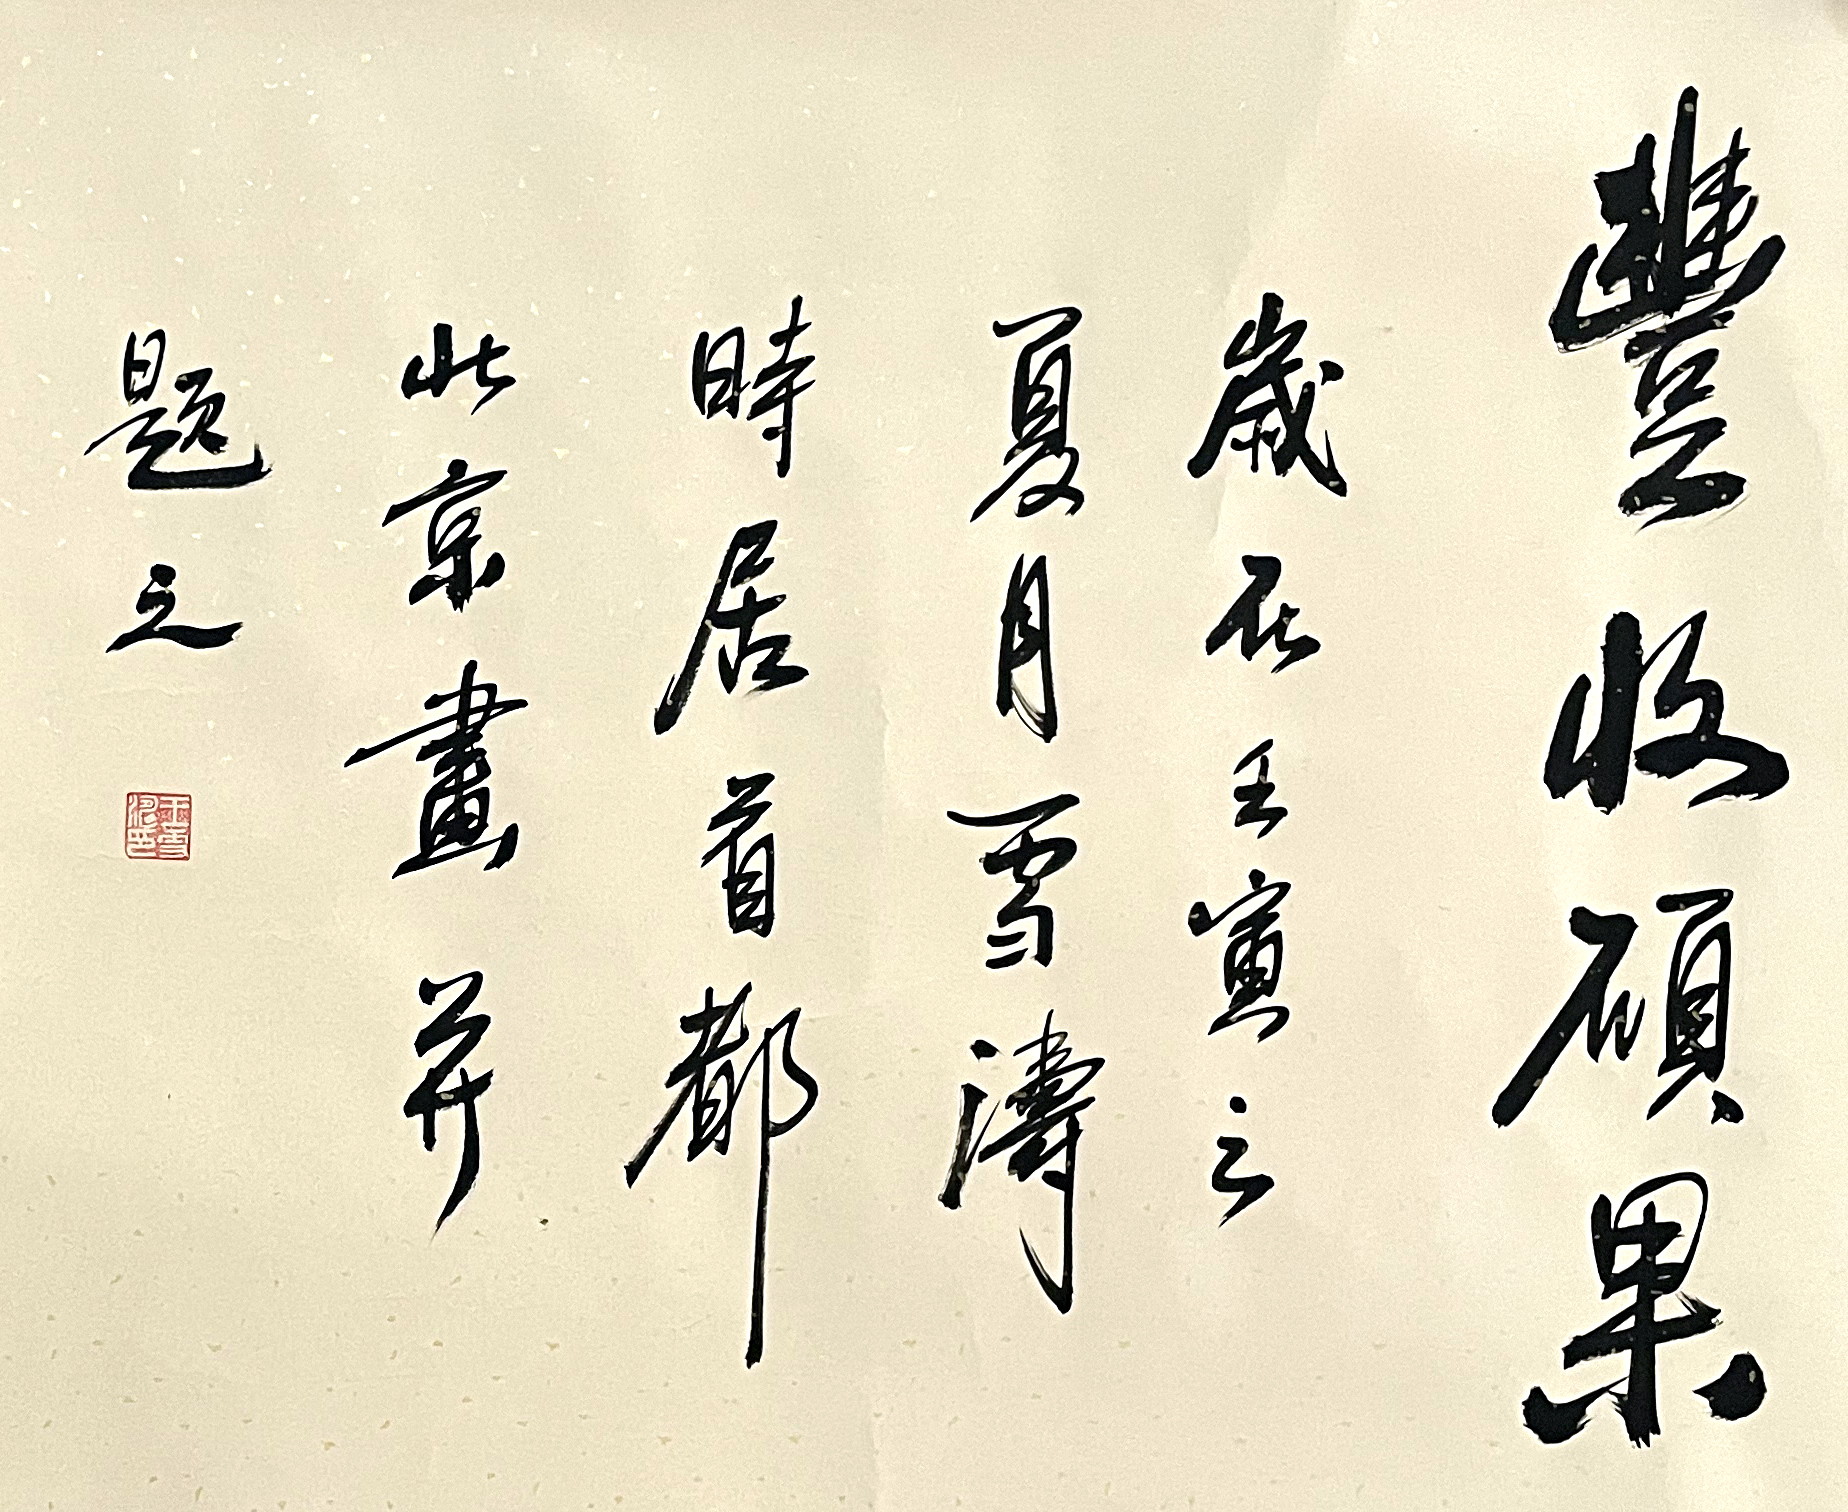 豐收碩果
歲在壬寅之
夏月雪濤
時居首都
北京畫并
題之
王雪濤印